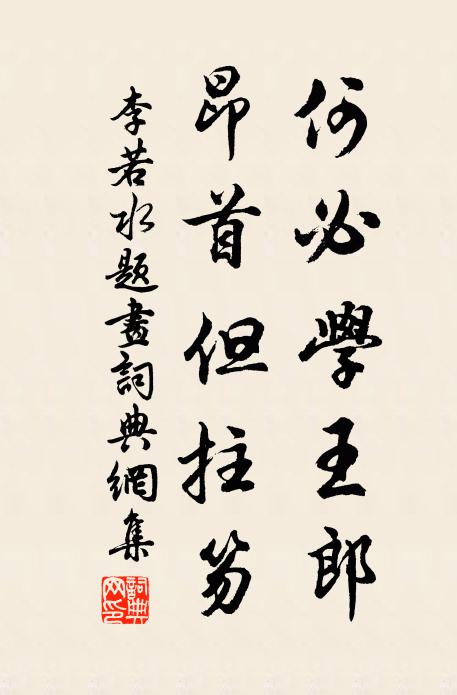 何必學王郎
昂首但拄笏
李若水題畫詞典網集
詞典網印